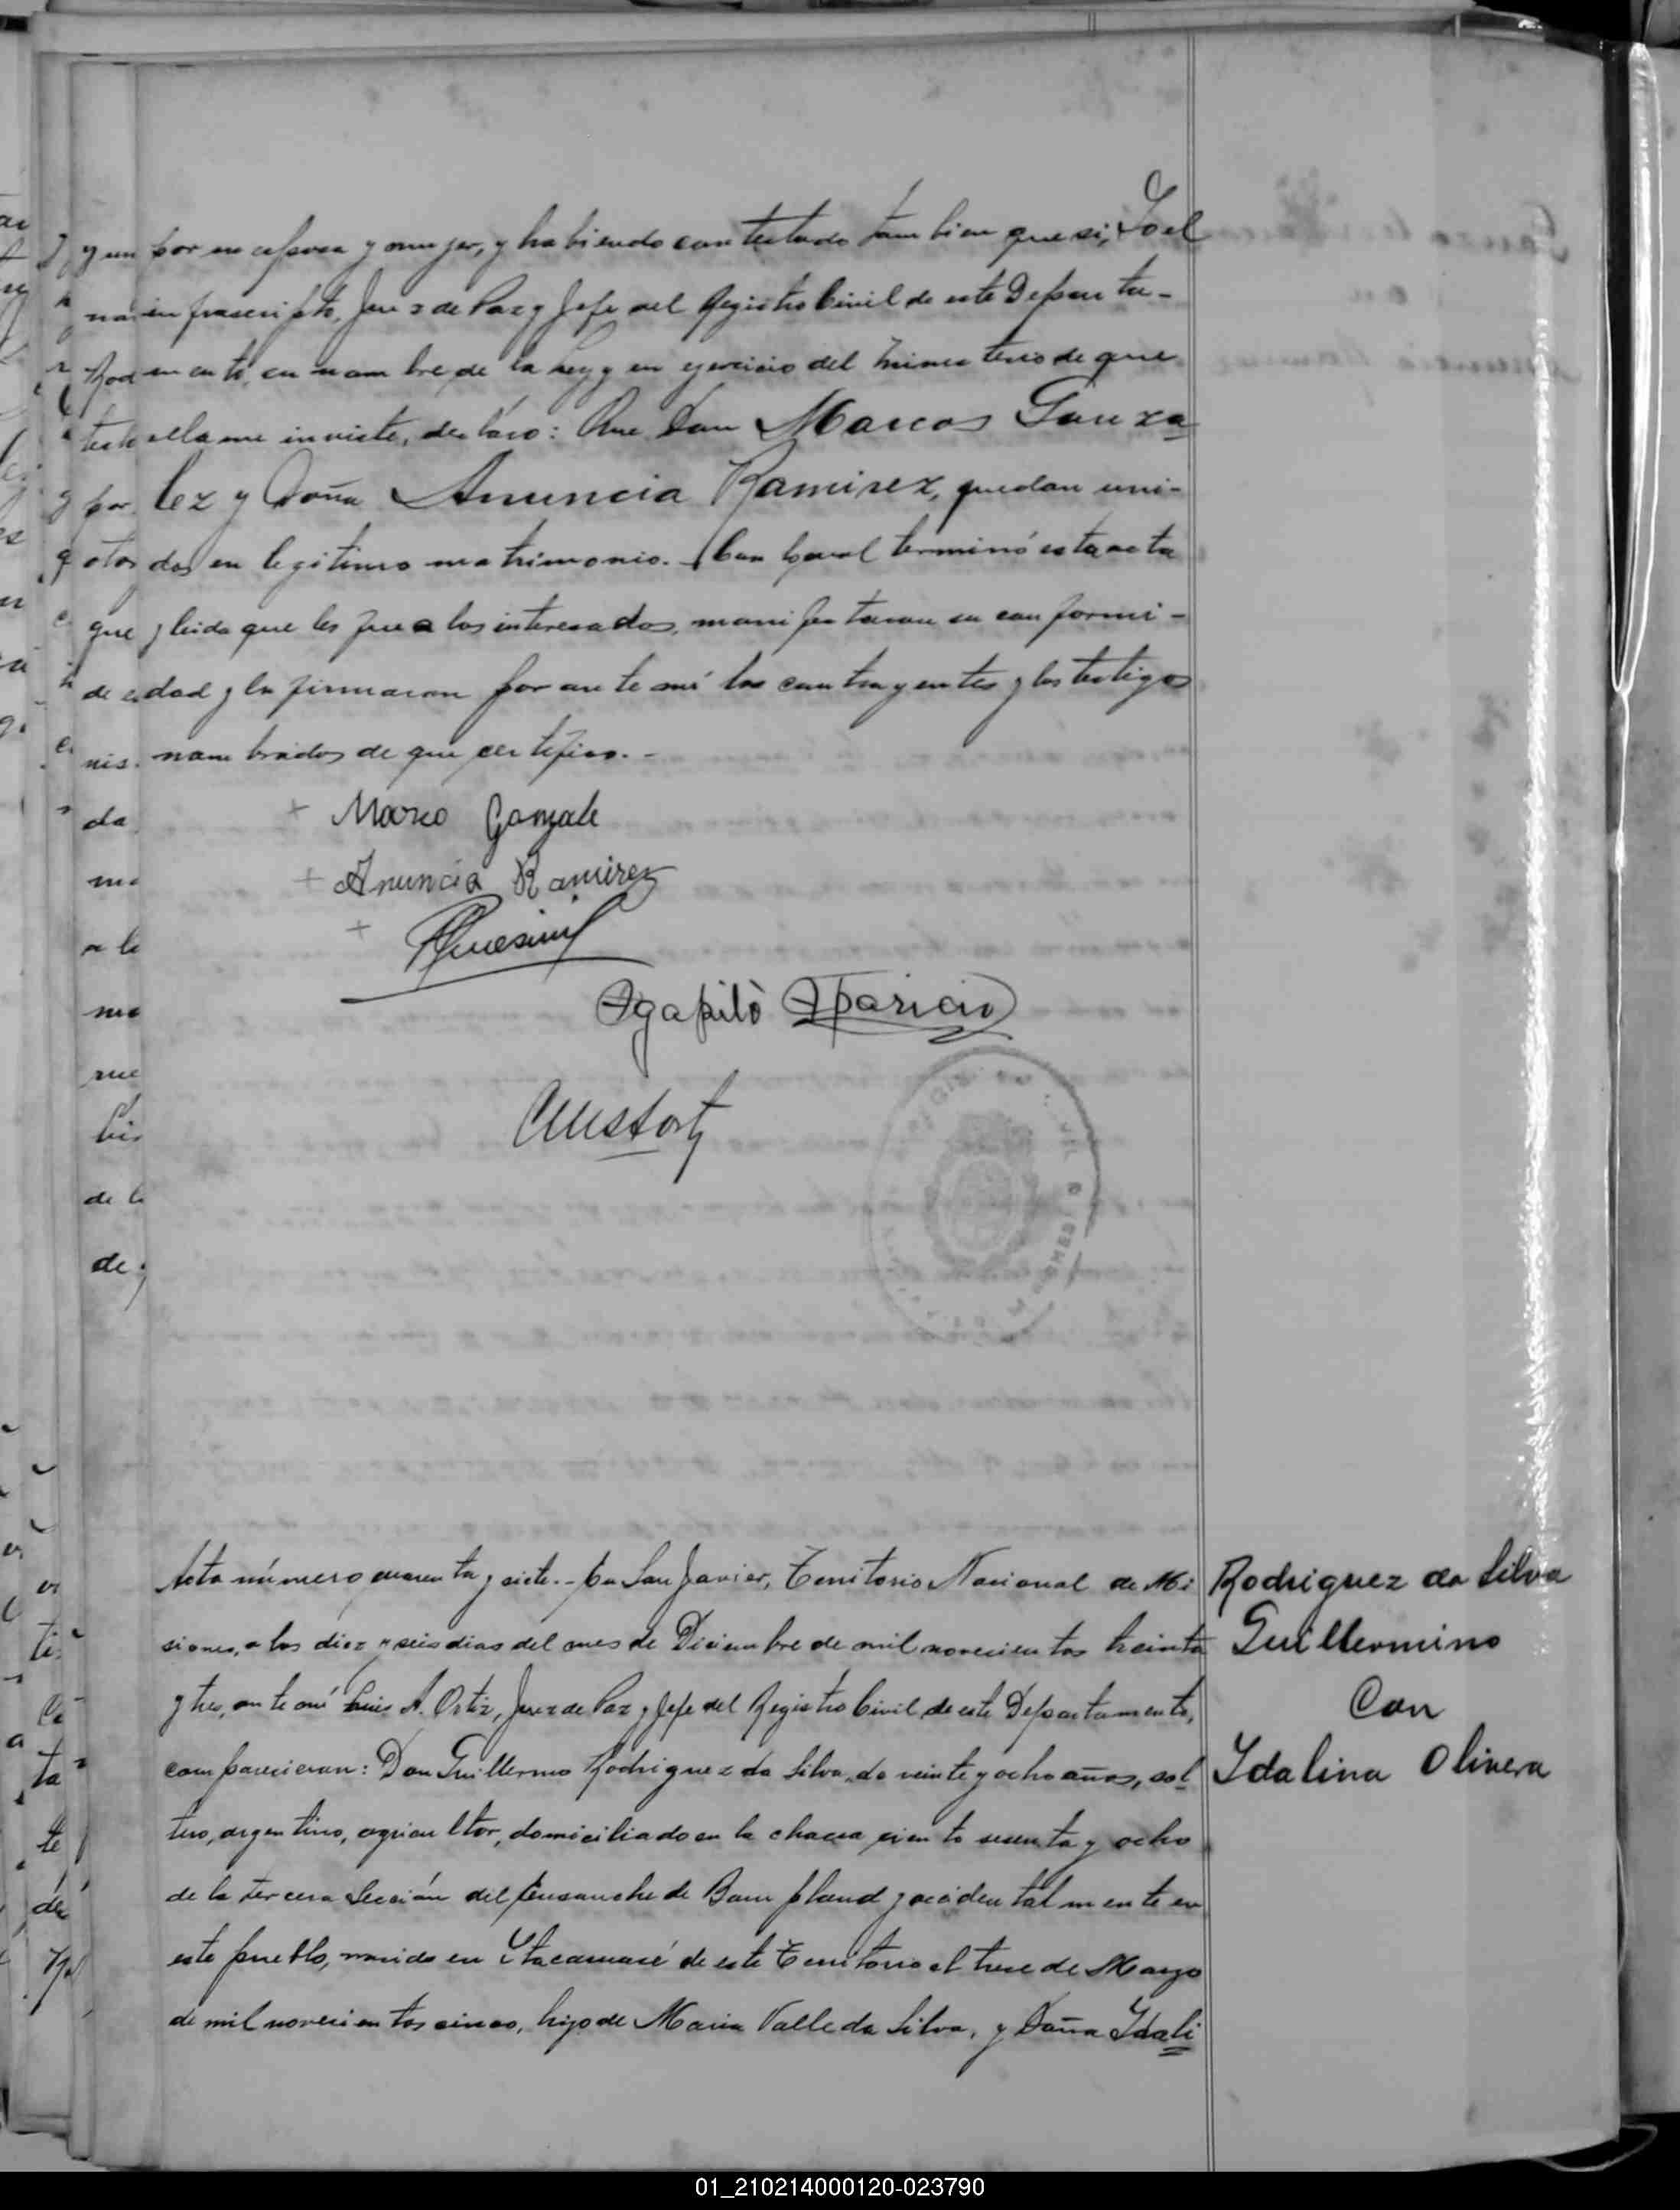 por su esposa y mujer, y habiendo contestado tambien que si, Yo el
infrascripto, Juez de Paz y Jefe del Registro Civil de este Departa-
mento, en nombre de la Ley y en ejercicio del ministerio de que
ella me inviste, declaro: Que Don Marcos Gonza
lez y Doña Anuncia Ramirez, quedan uni-
dos en legitimo matrimonio.- Con lo cual terminó esta acta
y leida que les fue a los interesados, manifestaron su conformi-
dad y la firmaron por ante mí los contrayentes y los testigos
nombrados de que certifico.-
+ Marco Gonzale
+ Anuncia Ramirez
+
Agapito Aparicio
Acta número cuarenta y siete.- En San Javier, Territorio Nacional de Mi
siones, a los diez y seis dias del mes de Diciembre de mil novecientos treinta
y tres, ante mí Luis A. Ortiz, Juez de Paz y Jefe del Registro Civil de este Departamento,
comparecieron: Don Guillermo Rodriguez da Silva, de veinte y ocho años, sol
tero, argentino, agricultor, domiciliado en la chacra ciento sesenta y ocho
de la tercera Sección del Ensanche de Bompland y accidentalmente en
este pueblo, nacido en Itacaruaré de este Territorio el trece de Marzo
de mil novecientos cinco, hijo de Maria Valle da Silva, y Doña Ydali
Rodriguez da Silva
Guillermino
Con
Ydalina Olivera
01_210214000120-023790